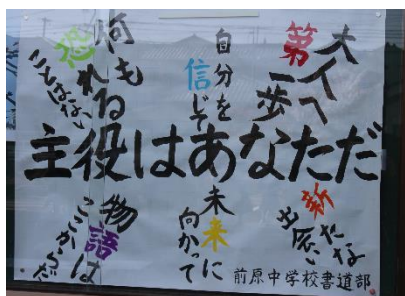 大人へ
第一歩
自分を
信じて
何も
恐れる
ことはない
主役はあなただ
新たな
出会い
未来に
向かって
物語は
ここからだ
前原中学校書道部